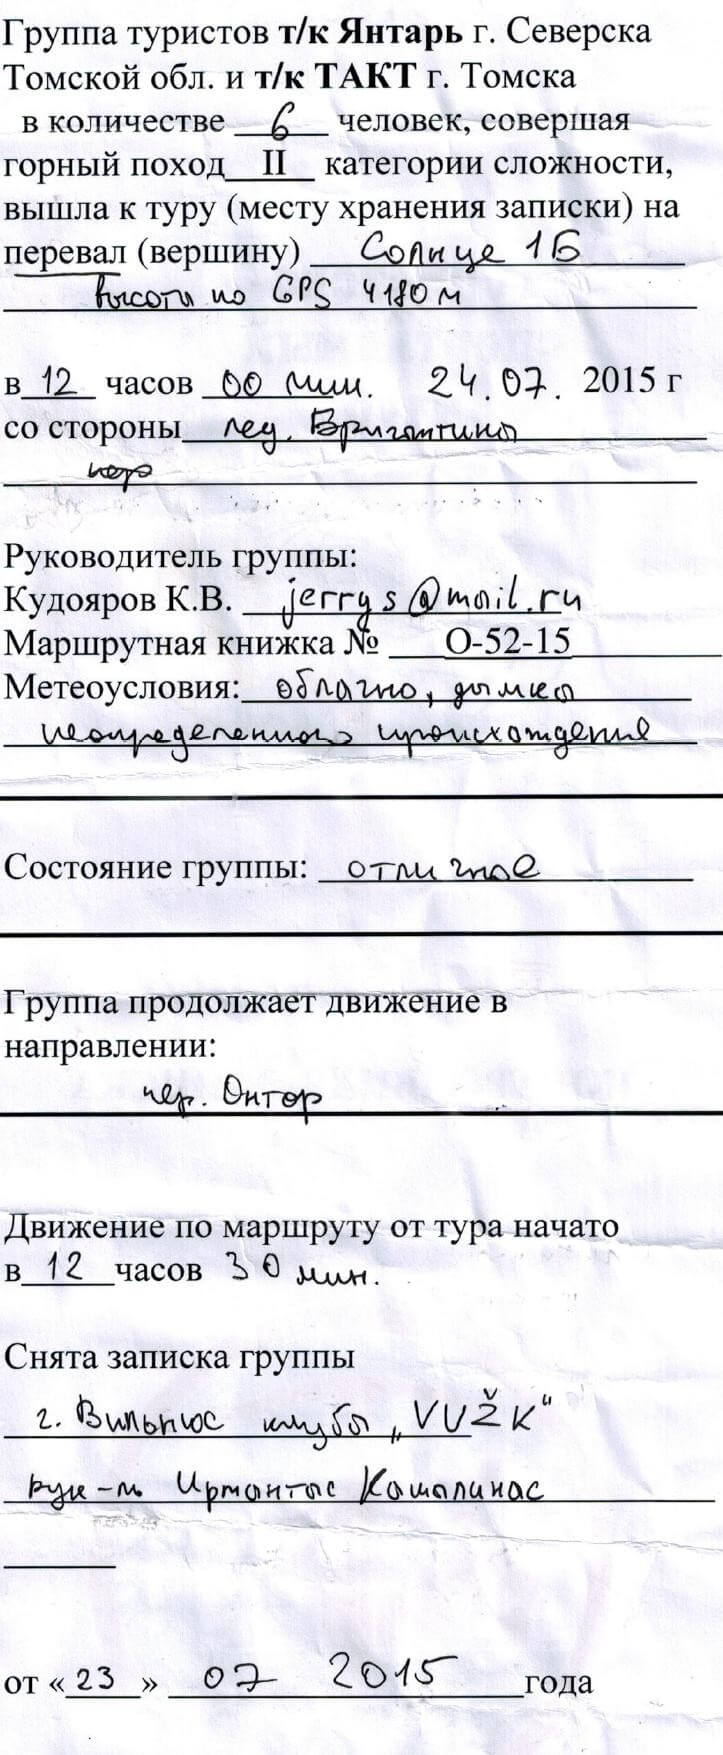 Группа туристов т/к Янтарь г. Северска
Томской обл. и т/к ТАКТ г. Томска
в количестве 6 человек, совершая
горный поход II категории сложности,
вышла к туру (месту хранения записки) на
перевал (вершину) Солнце 1Б
высота по GPS 4180м
в 12 часов 00 мин. 24.07. 2015 г
со стороны лед. Бригантины
Руководитель группы:
Кудояров К.В. jerrys@mail.ru
Маршрутная книжка № О-52-15
Метеоусловия: облачно, дымка
неопределенного происхождения
Состояние группы: отличное
Группа продолжает движение в
направлении:
пер. Онтор
Движение по маршруту от тура начато
в 12 часов 30 мин.
Снята записка группы
г. Вильнюс клубы „VUŽK“
рук-ль Ирмантас Кашалинас
от «23» 07 2015 года